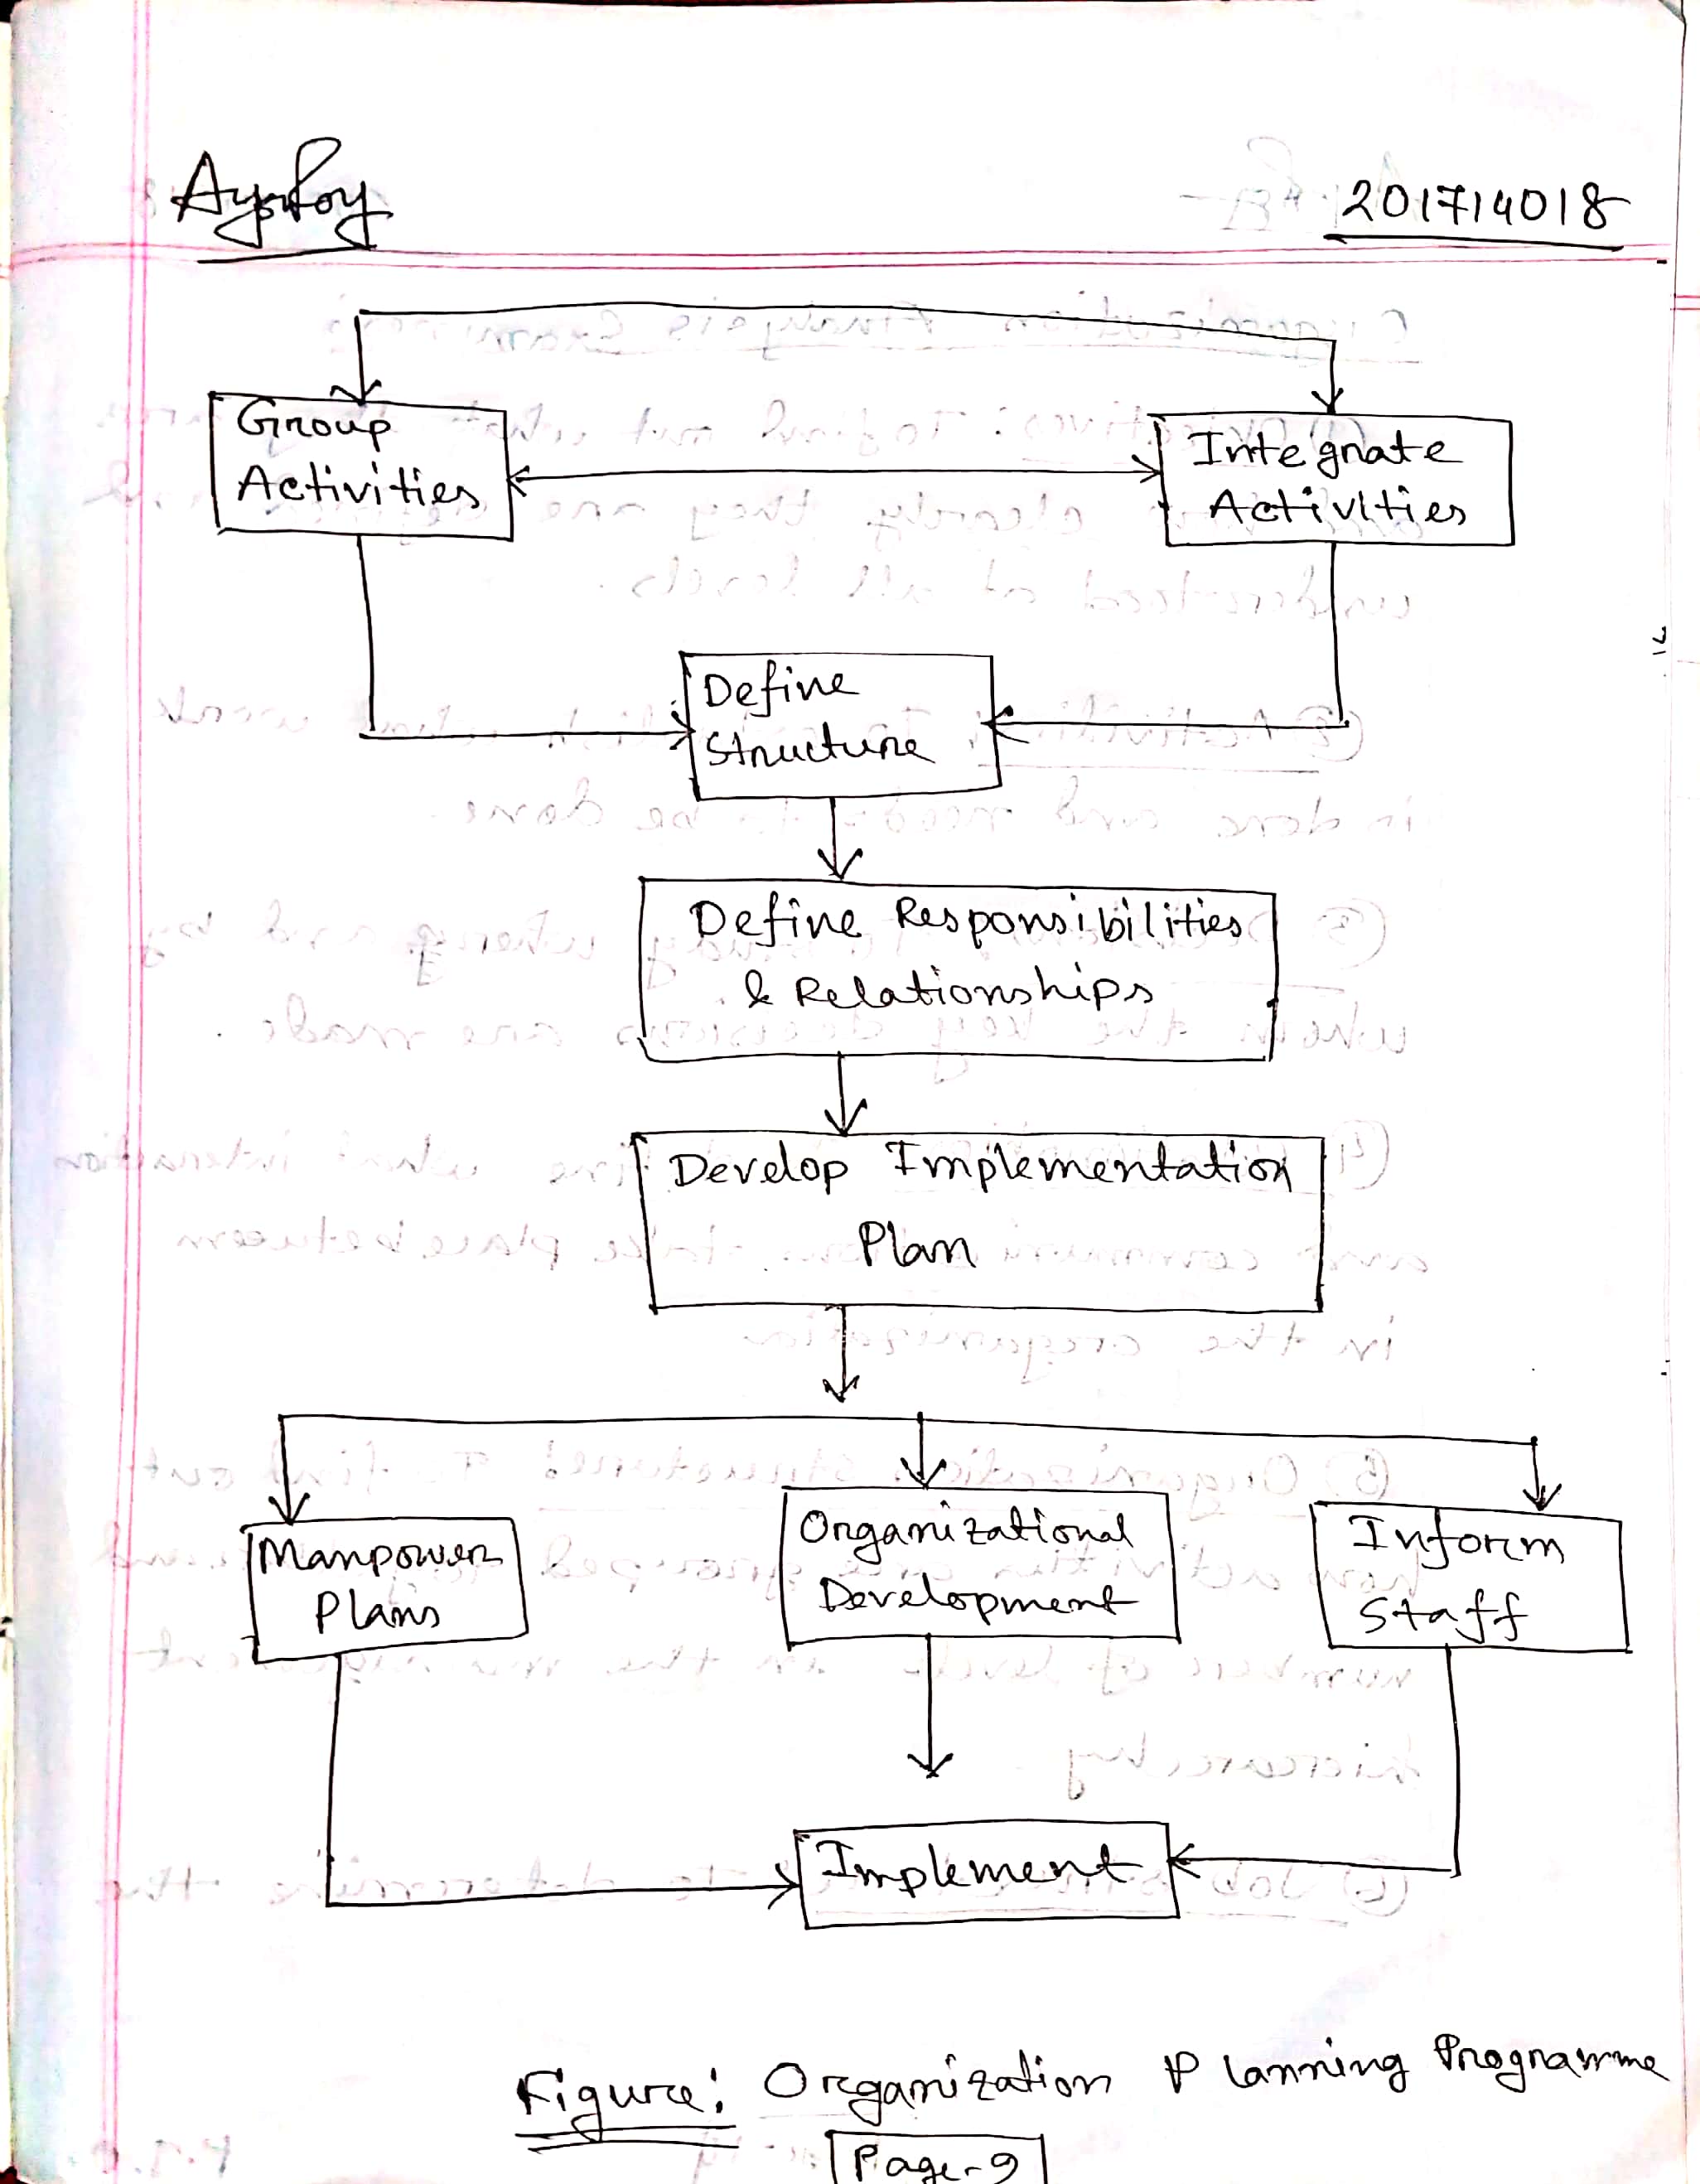 201714018
Group
Activities
Integrate
Activities
Define
Structure
Define Responsibilities
& Relationships
Develop Implementation
Plan
Manpower
Plans
Organizational
Development
Inform
Staff
Implement
Figure: Organization Planning Programme
Page-9